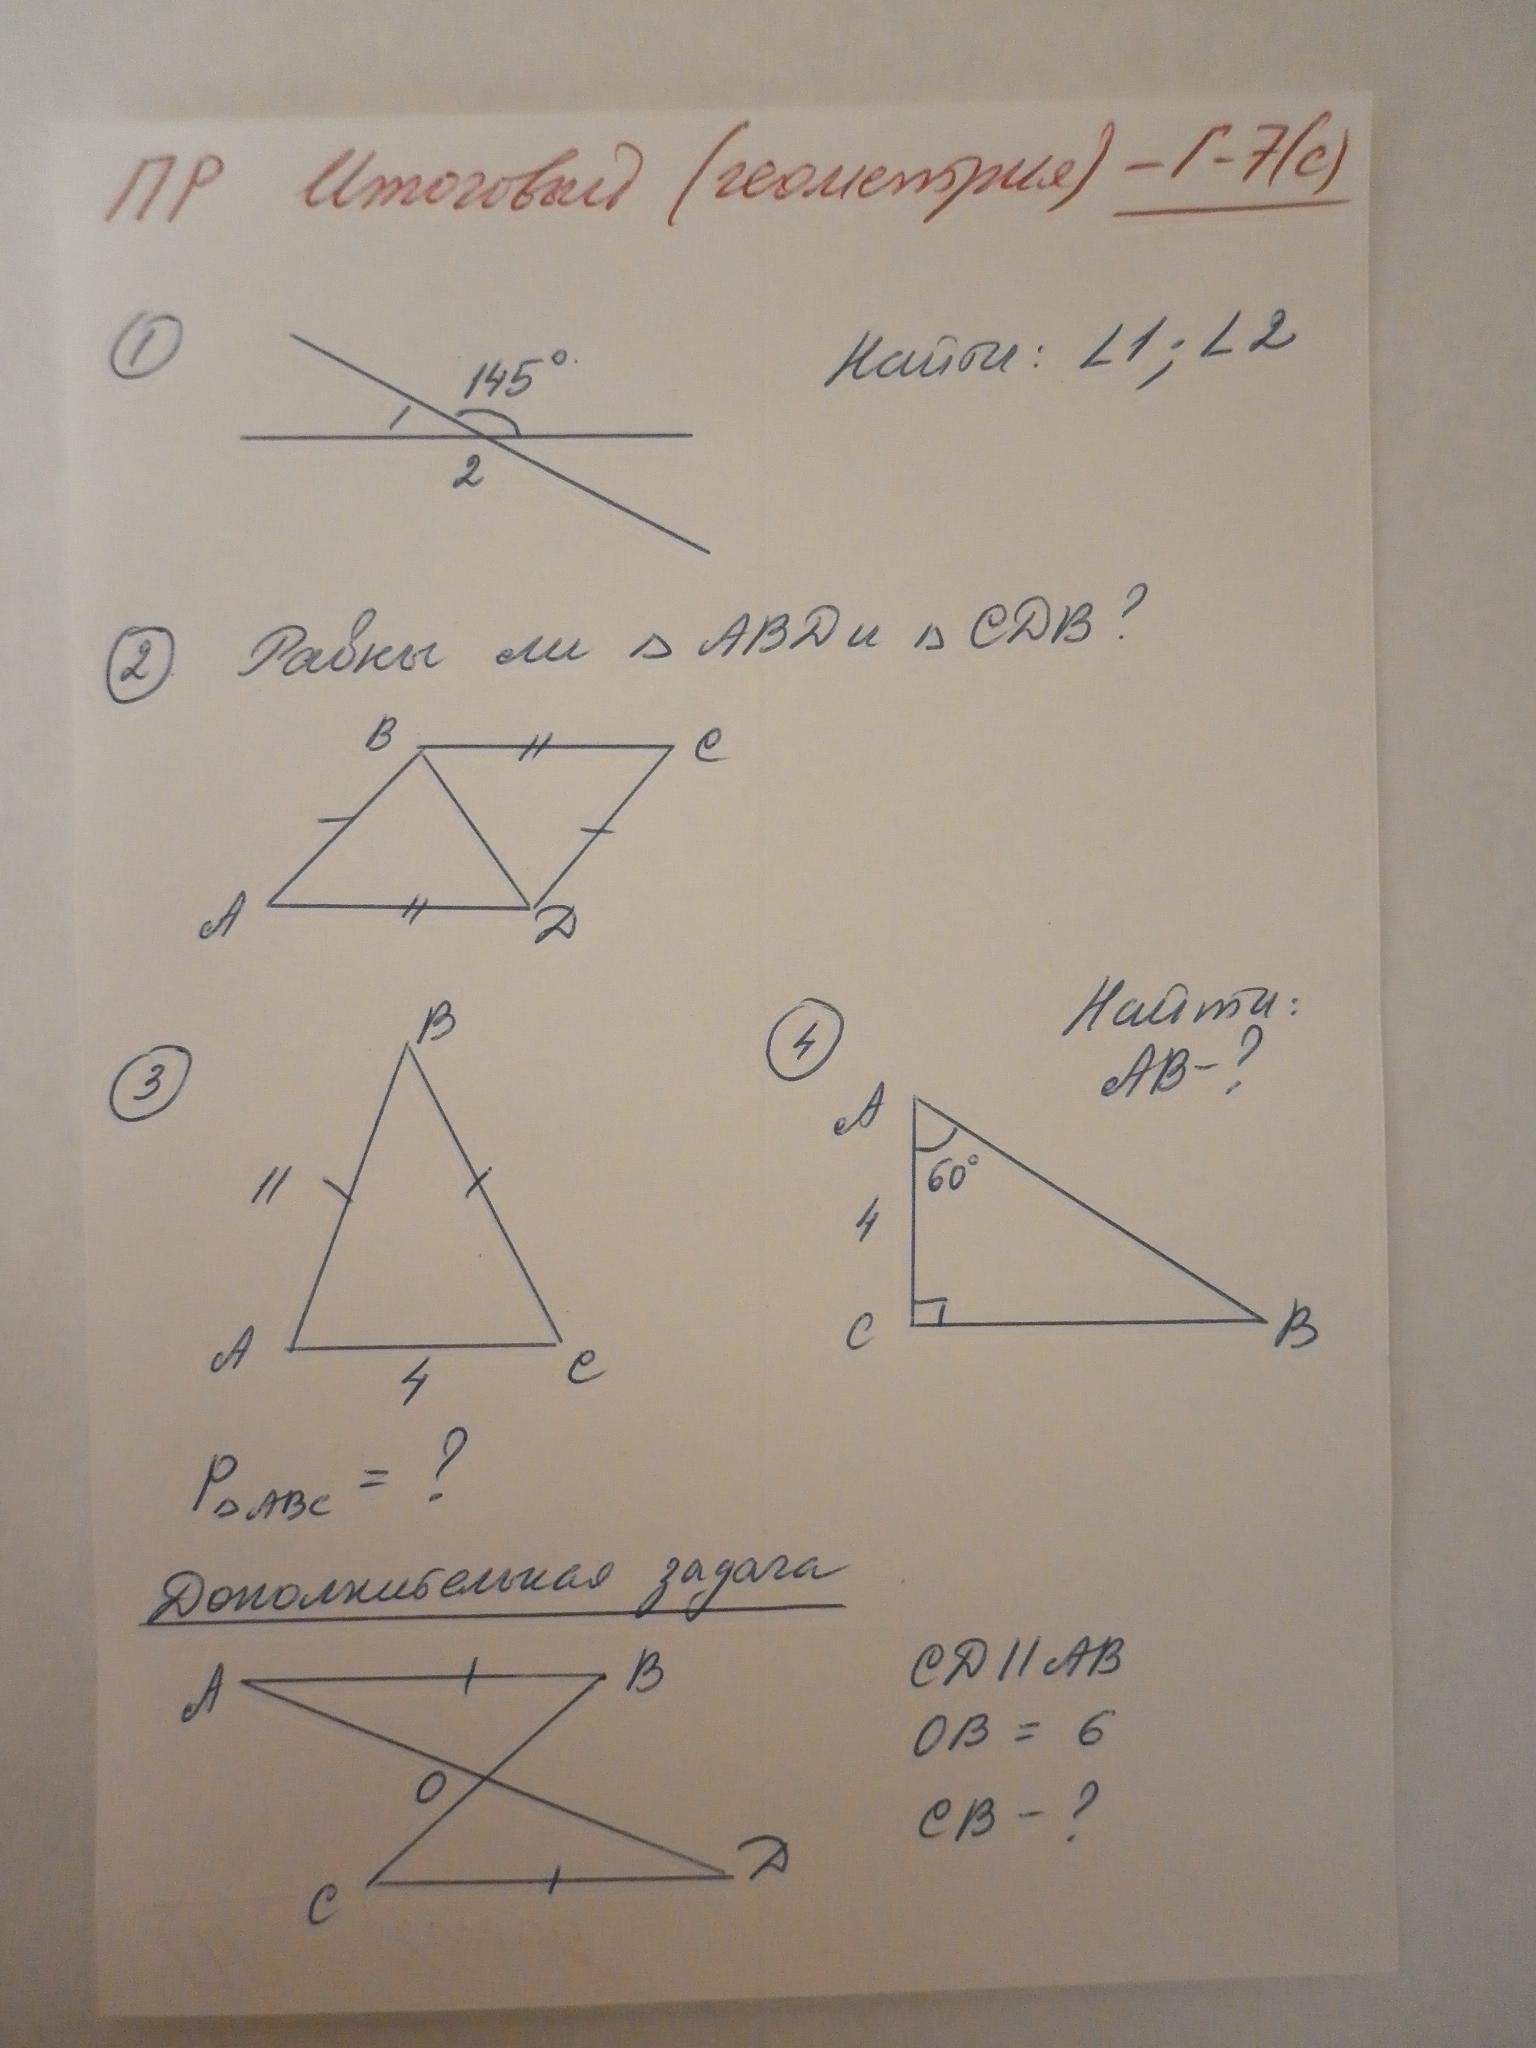 ПР Итоговый (геометрия) – Г-7(с)
① 145° Найти: ∠1; ∠2
1
2
② Равны ли △ ABD и △ CDB?
B C
A D
③ B
11
A C
4
P△ABC = ?
④ Найти:
AB-?
A
60°
4
C B
Дополнительная задача
A B
O
C D
CD || AB
OB = 6
CB - ?